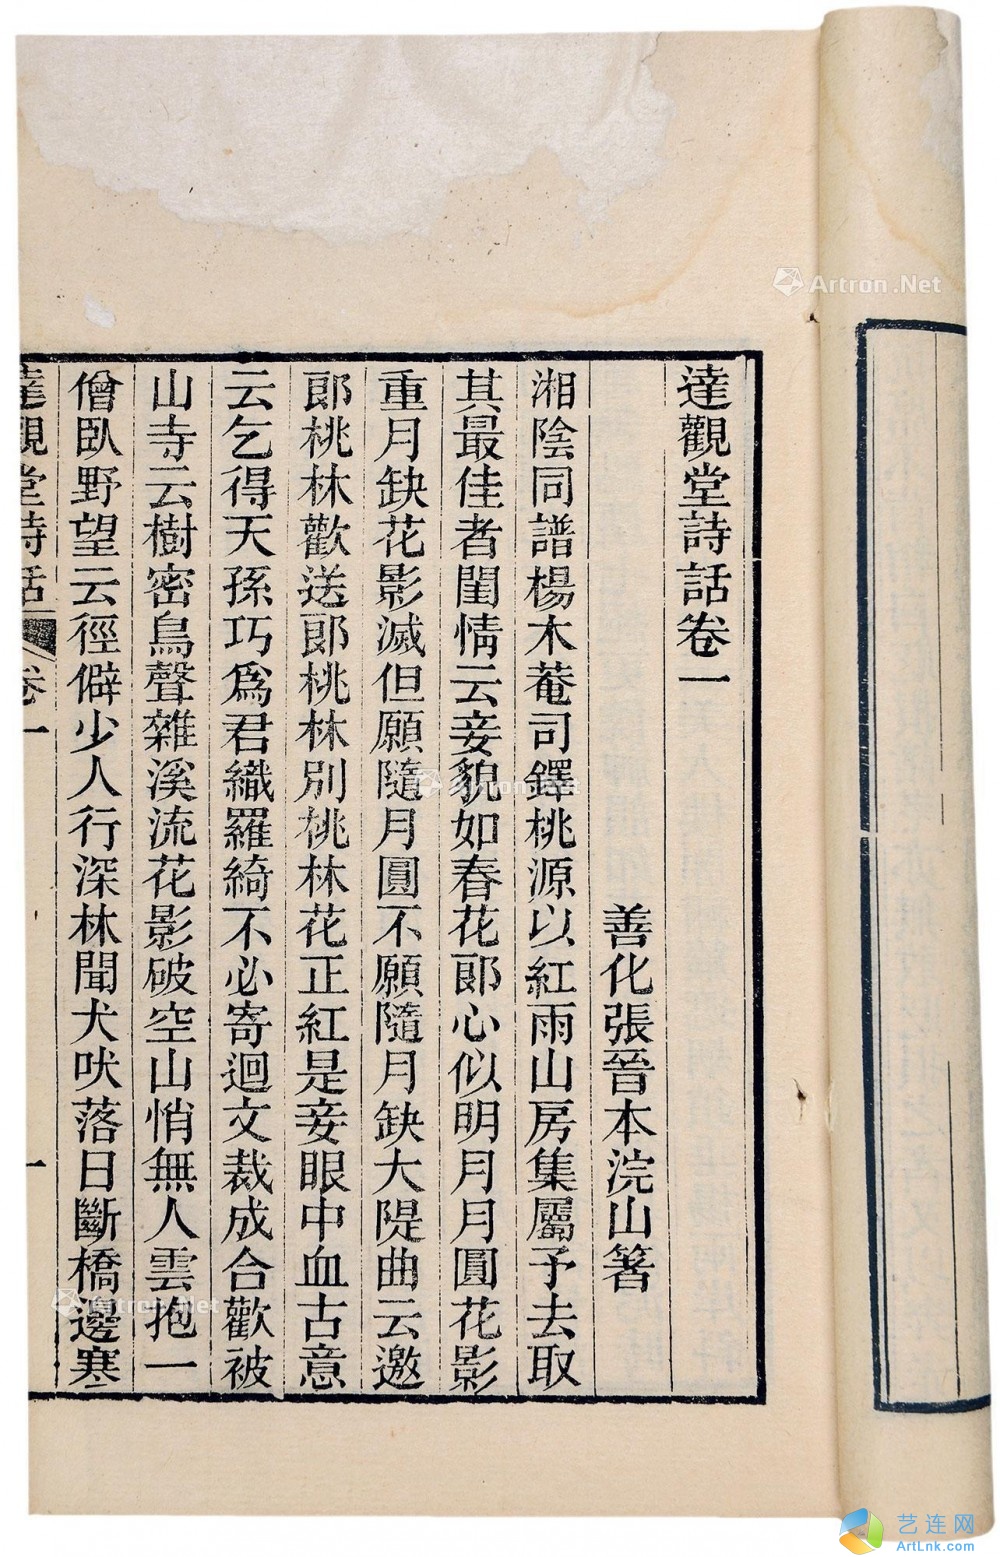 達觀堂詩話卷一
善化張晉本浣山箸
湘陰同譜楊木菴司鐸桃源以紅雨山房集屬予去取
其最佳者閨情云妾貌如春花郎心似明月月圓花影
重月缺花影滅但願隨月圓不願隨月缺大隄曲云邀
郎桃林歡送郎桃林別桃林花正紅是妾眼中血古意
云乞得天孫巧爲君織羅綺不必寄迴文裁成合歡被
山寺云樹密鳥聲雜溪流花影破空山悄無人雲抱一
僧臥野望云徑僻少人行深林聞犬吠落日斷橋邊寒
達觀堂詩話 卷一 一
Artron.Net
Artron.Net
Artron.Net
艺连网
ArtLnk.com